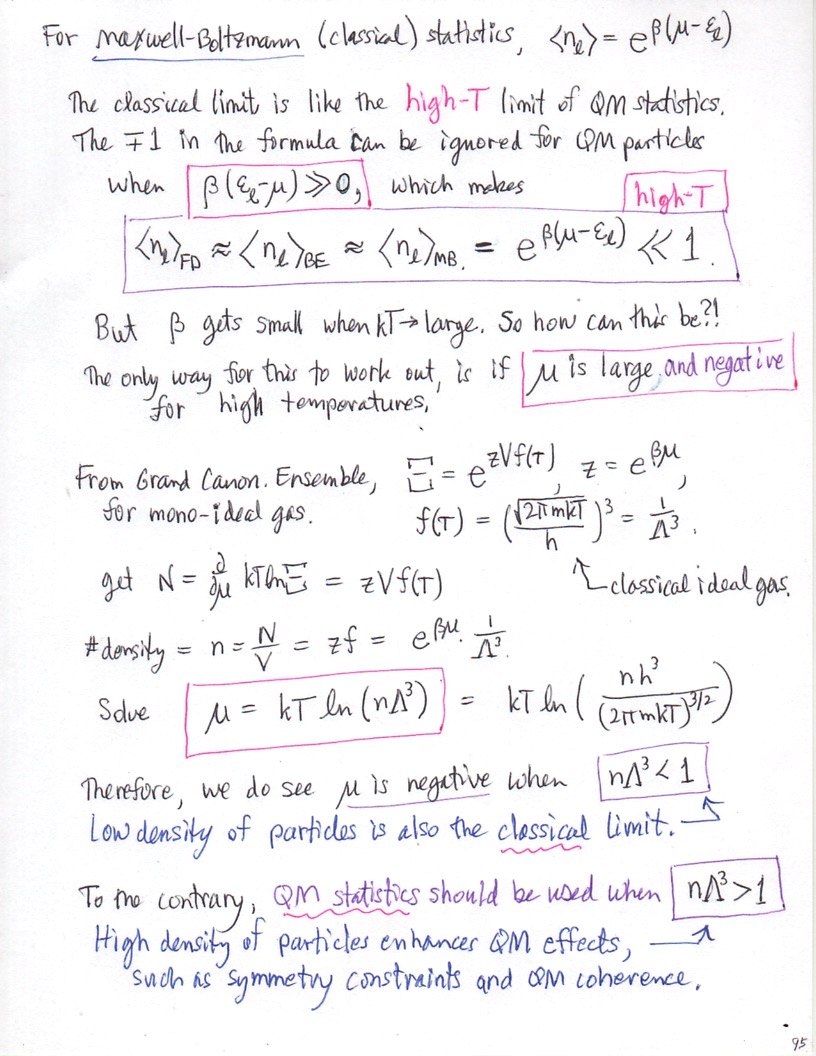 For Maxwell-Boltzmann (classical) statistics, ⟨nₑ⟩ = e^β(μ-εₑ)
The classical limit is like the high-T limit of QM statistics.
The ∓1 in the formula can be ignored for QM particles
when β(εₑ-μ) ≫ 0, which makes
high-T
⟨nₑ⟩FD ≈ ⟨nₑ⟩BE ≈ ⟨nₑ⟩MB. = e^β(μ-εₑ) ≪ 1.
But β gets small when kT → large. So how can this be?!
The only way for this to work out, is if μ is large, and negative
for high temperatures.
From Grand Canon. Ensemble, Ξ = e^zVf(T), z = e^βμ,
for mono-ideal gas. f(T) = (√2πmkT / h)³ = 1/Λ³.
get N = ∂/∂μ kT ln Ξ = zVf(T) ↖ classical ideal gas.
# density = n = N/V = zf = e^βμ · 1/Λ³.
Solve μ = kT ln (nΛ³) = kT ln (nh³ / (2πmkT)^3/2)
Therefore, we do see μ is negative when nΛ³ < 1
Low density of particles is also the classical limit.
To the contrary, QM statistics should be used when nΛ³ > 1
High density of particles enhances QM effects,
such as symmetry constraints and QM coherence.
95